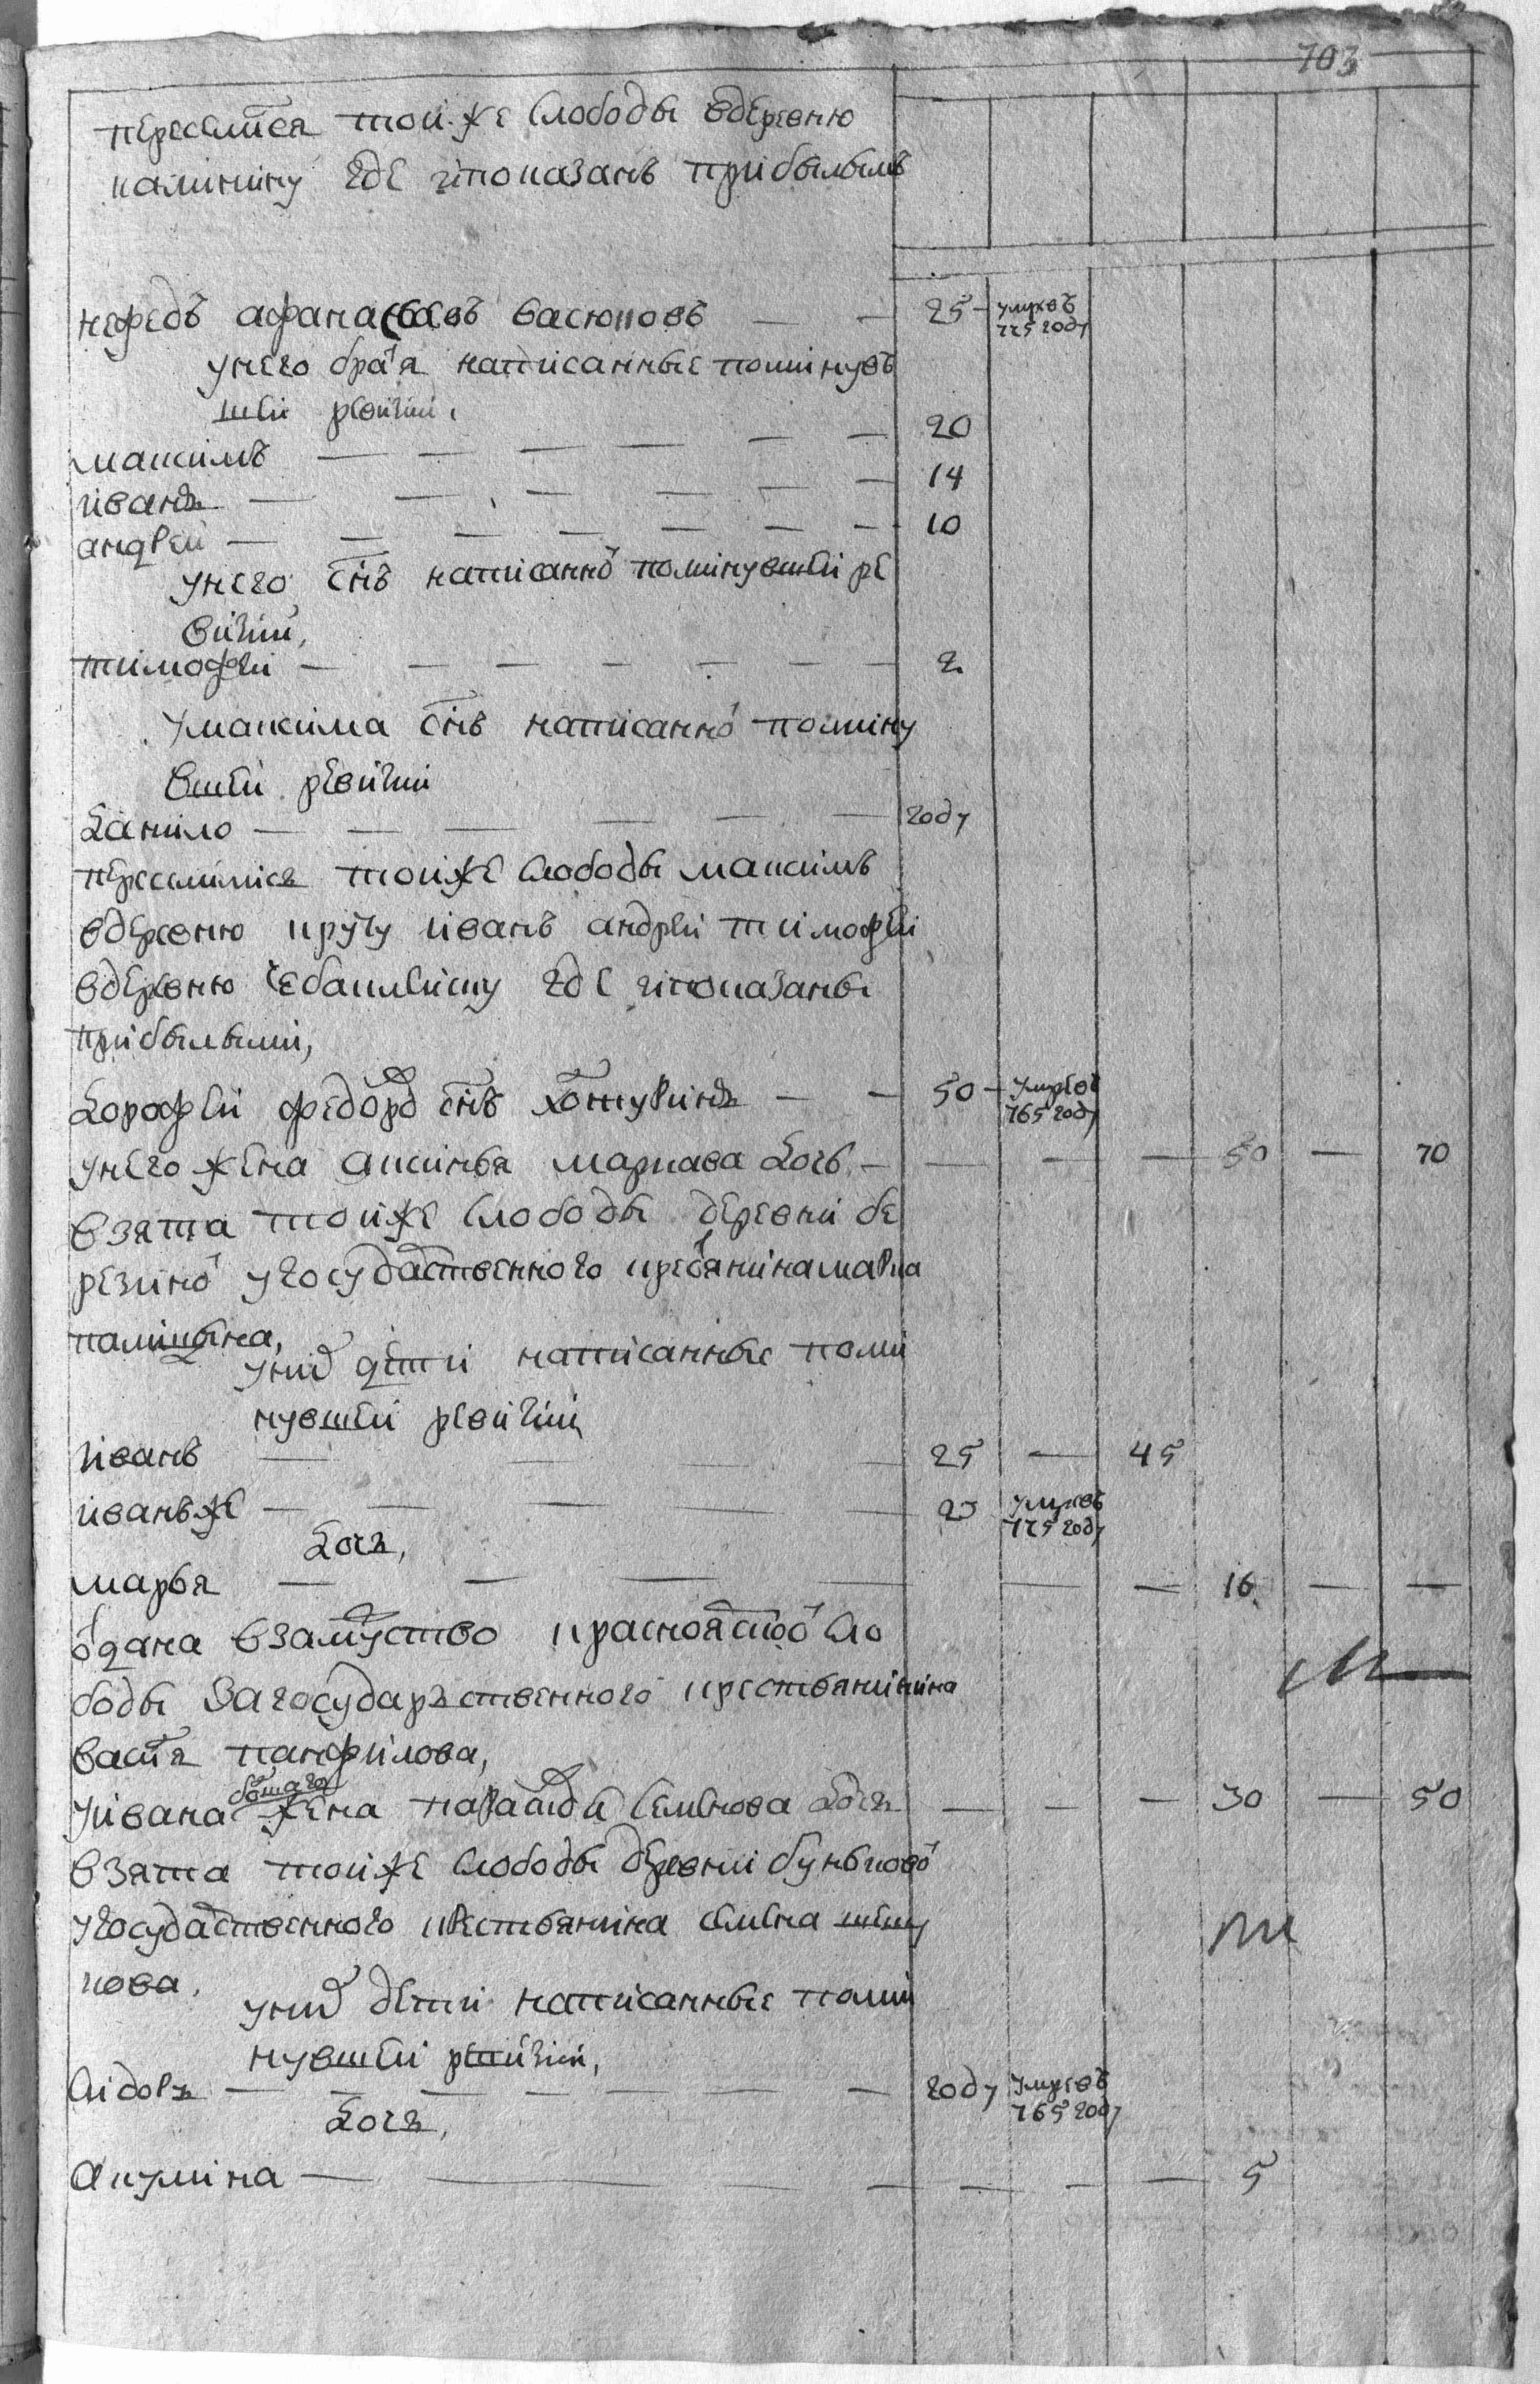 703
переселился той же слободы вдеревню
калинину где ипоказанъ прибылымъ
нефедъ афанасьевъ васюковъ — — 25 — умре въ
775 году
унего братья написанные поминув
шеи ревизии,
максимъ — — — — — 20
иванъ — — — — — — 14
андреи — — — — — — — 10
унего снъ написанной поминувшеи ре
визии,
тимофеи — — — — — — — 2
умаксима снъ написанной помину
вшеи ревизии
данило — — — — — — году
переселились тоиже слободы максимъ
вдеревню кручу иванъ андреи тимофеи
вдеревню гдe ипоказаны
прибылыми,
дорофеи федоровъ снъ хотурлинъ — — 50 — умре въ
765 году
унего жена аксинья маркова дочь — — — — 50 — 70
взята тоиже слободы деревни бе
резиной угосударственного крестьянина марка
палицына,
унихъ дети написанные поми
нувшеи ревизии
иванъ — — — — 25 — 45
иванъ же — — — — 23 умре въ
775 году
дочь,
марья — — — — — — 16 — —
отдана взамужство красноярской сло
боды загосударственного крестьянинина
василья панфилова,
уивана большаго жена парасковья семенова дочь — — — 30 — 50
взята тоиже слободы деревни буньковой
угосударственного крестьянина семена шешу
кова,
унихъ дети написанные поми
нувшеи ревизии,
сидоръ — — — — — — — году умре въ
765 году
дочь,
акулина — — — — — — 5